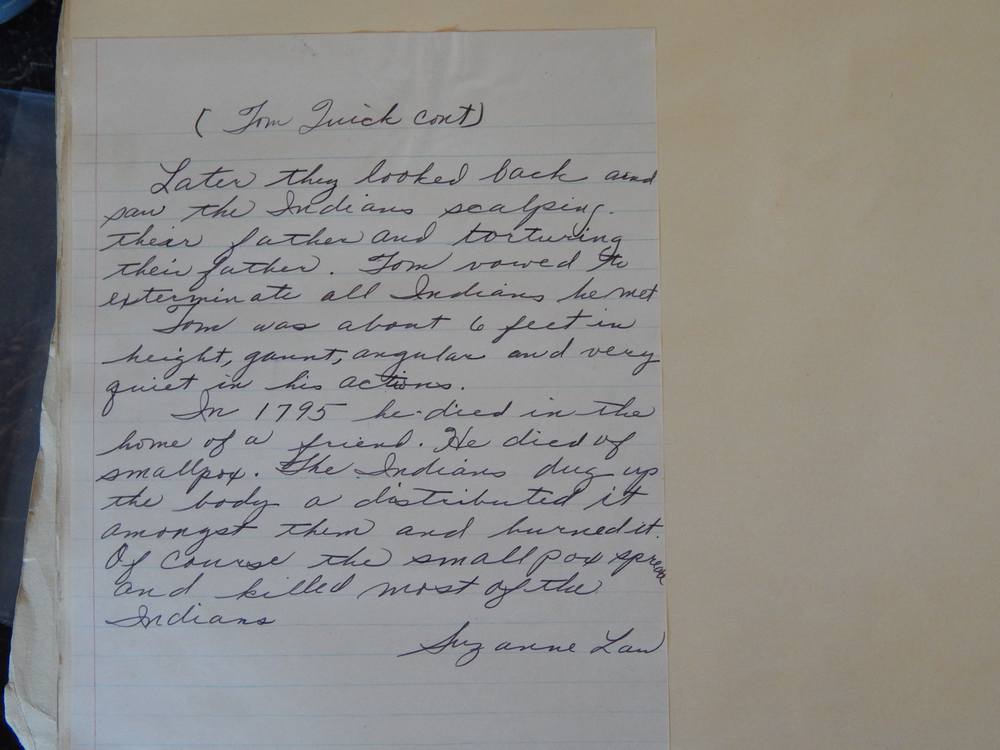 ( Tom Quick cont)
Later they looked back and
saw the Indians scalping.
their father and torturing
their father. Tom vowed to
exterminate all Indians he met
Tom was about 6 feet in
height, gaunt, angular and very
quiet in his actions.
In 1795 he died in the
home of a friend. He died of
smallpox. The Indians dug up
the body a distributed it
amongst them and burned it.
Of course the small pox spread
and killed most of the
Indians
Suzanne Law